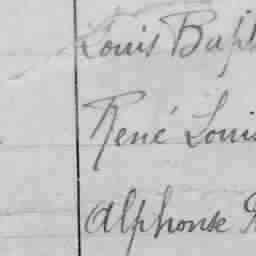 Louis Bap
René Louis
Alphonse